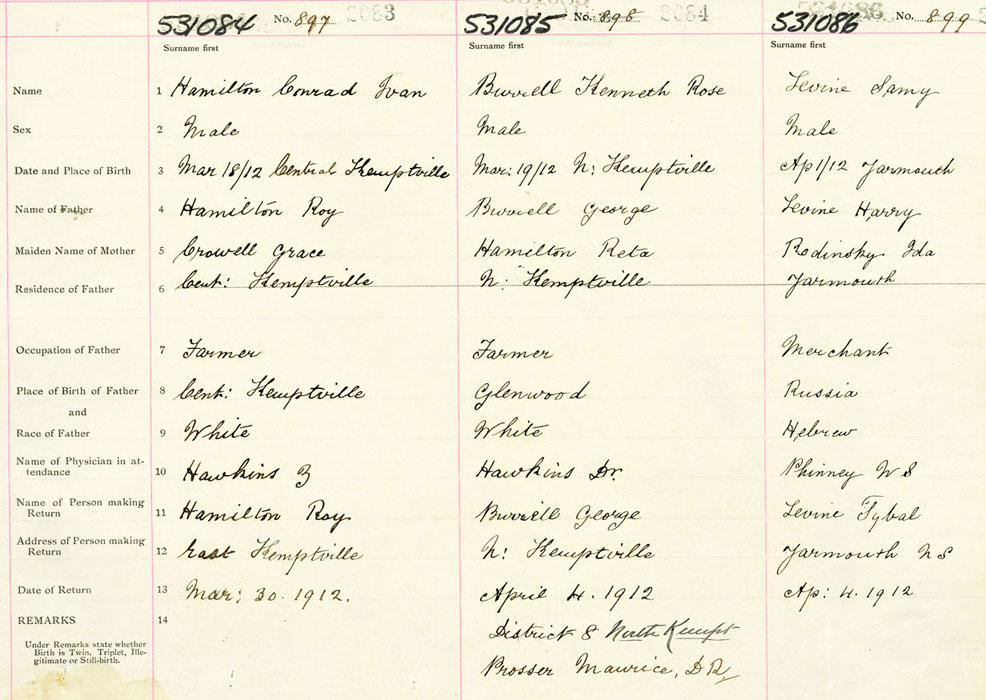 531084 No. 897 2083 531085 No. 898 2084 531086 No. 899
Surname first Surname first Surname first
Name 1 Hamilton Conrad Ivan Burrell Kenneth Rose Levine Samy
Sex 2 Male Male Male
Date and Place of Birth 3 Mar 18/12 Central Kemptville Mar: 19/12 N: Kemptville Ap 1/12 Yarmouth
Name of Father 4 Hamilton Roy Burrell George Levine Harry
Maiden Name of Mother 5 Crowell Grace Hamilton Reta Rodinsky Ida
Residence of Father 6 Cent: Kemptville N: Kemptville Yarmouth
Occupation of Father 7 Farmer Farmer Merchant
Place of Birth of Father 8 Cent: Kemptville Glenwood Russia
and
Race of Father 9 White White Hebrew
Name of Physician in at-
tendance 10 Hawkins Z Hawkins Dr. Phinney W S
Name of Person making
Return 11 Hamilton Roy Burrell George Levine Tybal
Address of Person making
Return 12 East Kemptville N: Kemptville Yarmouth N S
Date of Return 13 Mar: 30. 1912. April 4. 1912 Ap: 4. 1912
REMARKS 14
District 8 North Kempt
Under Remarks state whether
Birth is Twin, Triplet, Ille-
gitimate or Still-birth.
Prosser Maurice, D.R.